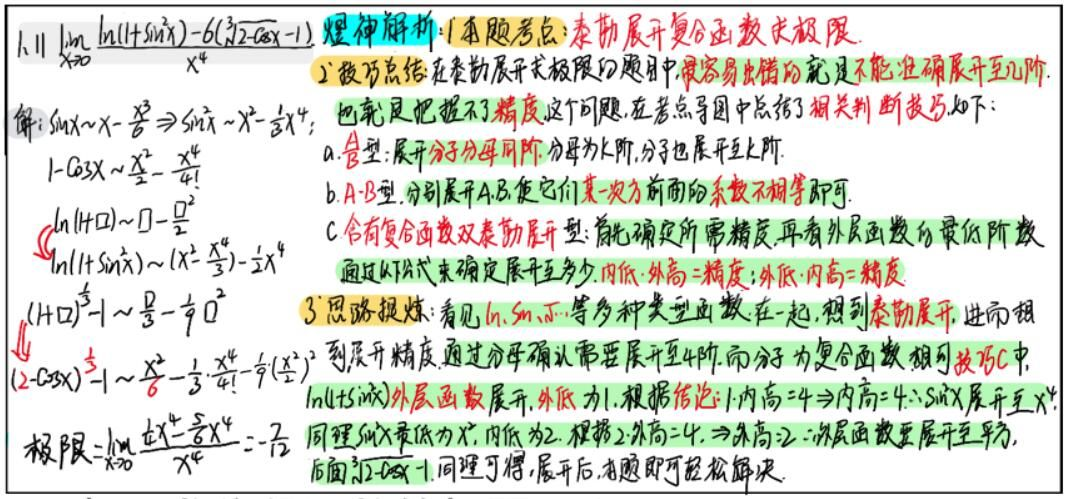 1.11 lim x→0 ln(1+sin²x)-6(∛(2-cosx)-1) / x⁴
解: sinx~x-x³/6 ⇒ sin²x~x²-1/3x⁴;
1-cosx~x²/2-x⁴/4!
ln(1+□)~□-□²/2
ln(1+sin²x)~(x²-x⁴/3)-1/2x⁴
(1+□)^(1/3)-1~□/3-1/9□²
(2-cosx)^(1/3)-1~x²/6-1/3·x⁴/4!-1/9·(x²/2)²
极限=lim x→0 /x⁴=-7/12
煜神解析:1°本题考点:泰勒展开复合函数求极限.
2°技巧总结:在泰勒展开求极限的题目中,最容易出错的就是不能准确展开至几阶.
也就是把握不了精度,这个问题,在考点导图中总结了相关判断技巧,如下:
a.A/B型:展开分子分母同阶.分母为k阶,分子也展开至k阶.
b.A-B型.分别展开A.B.使它们某一次方前面的系数不相等即可.
C.含有复合函数双泰勒展开型:首先确定所需精度,再看外层函数的最低阶数
通过以下公式来确定展开至多少.内低·外高=精度;外低·内高=精度.
3°思路提炼:看见ln.sin.√…等多种类型函数在一起,想到泰勒展开,进而想
到展开精度.通过分母确认需要展开至4阶.而分子为复合函数.想到技巧C中,
ln(1+sin²x)外层函数展开,外低为1.根据结论:1·内高=4⇒内高=4∴sin²x展开至x⁴.
同理sin²x最低为x²,内低为2.根据2·外高=4,⇒外高=2∴外层函数要展开至平方,
后面∛(2-cosx)-1.同理可得,展开后,本题即可轻松解决.